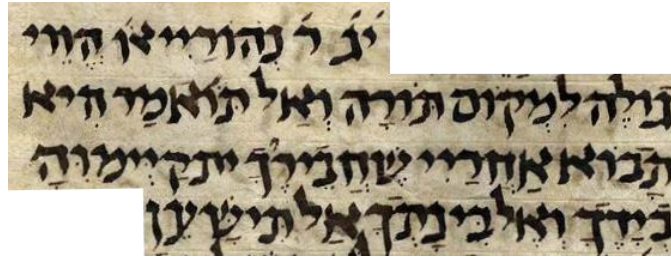 יג ר נְהוֹרַיי או הֱווֵי
גוֹלֶה לִמְקוֹם תּוֹרָה וְאַל תֹּאמַר הִיא
תָבוֹא אַחֲרַיי שֶׁחֲבֵירֶיךָ יתקיימוּהָ
בְיָדָךְ וְאֶל בִּינָתְךָ אַל תִּישָּׁעֵן